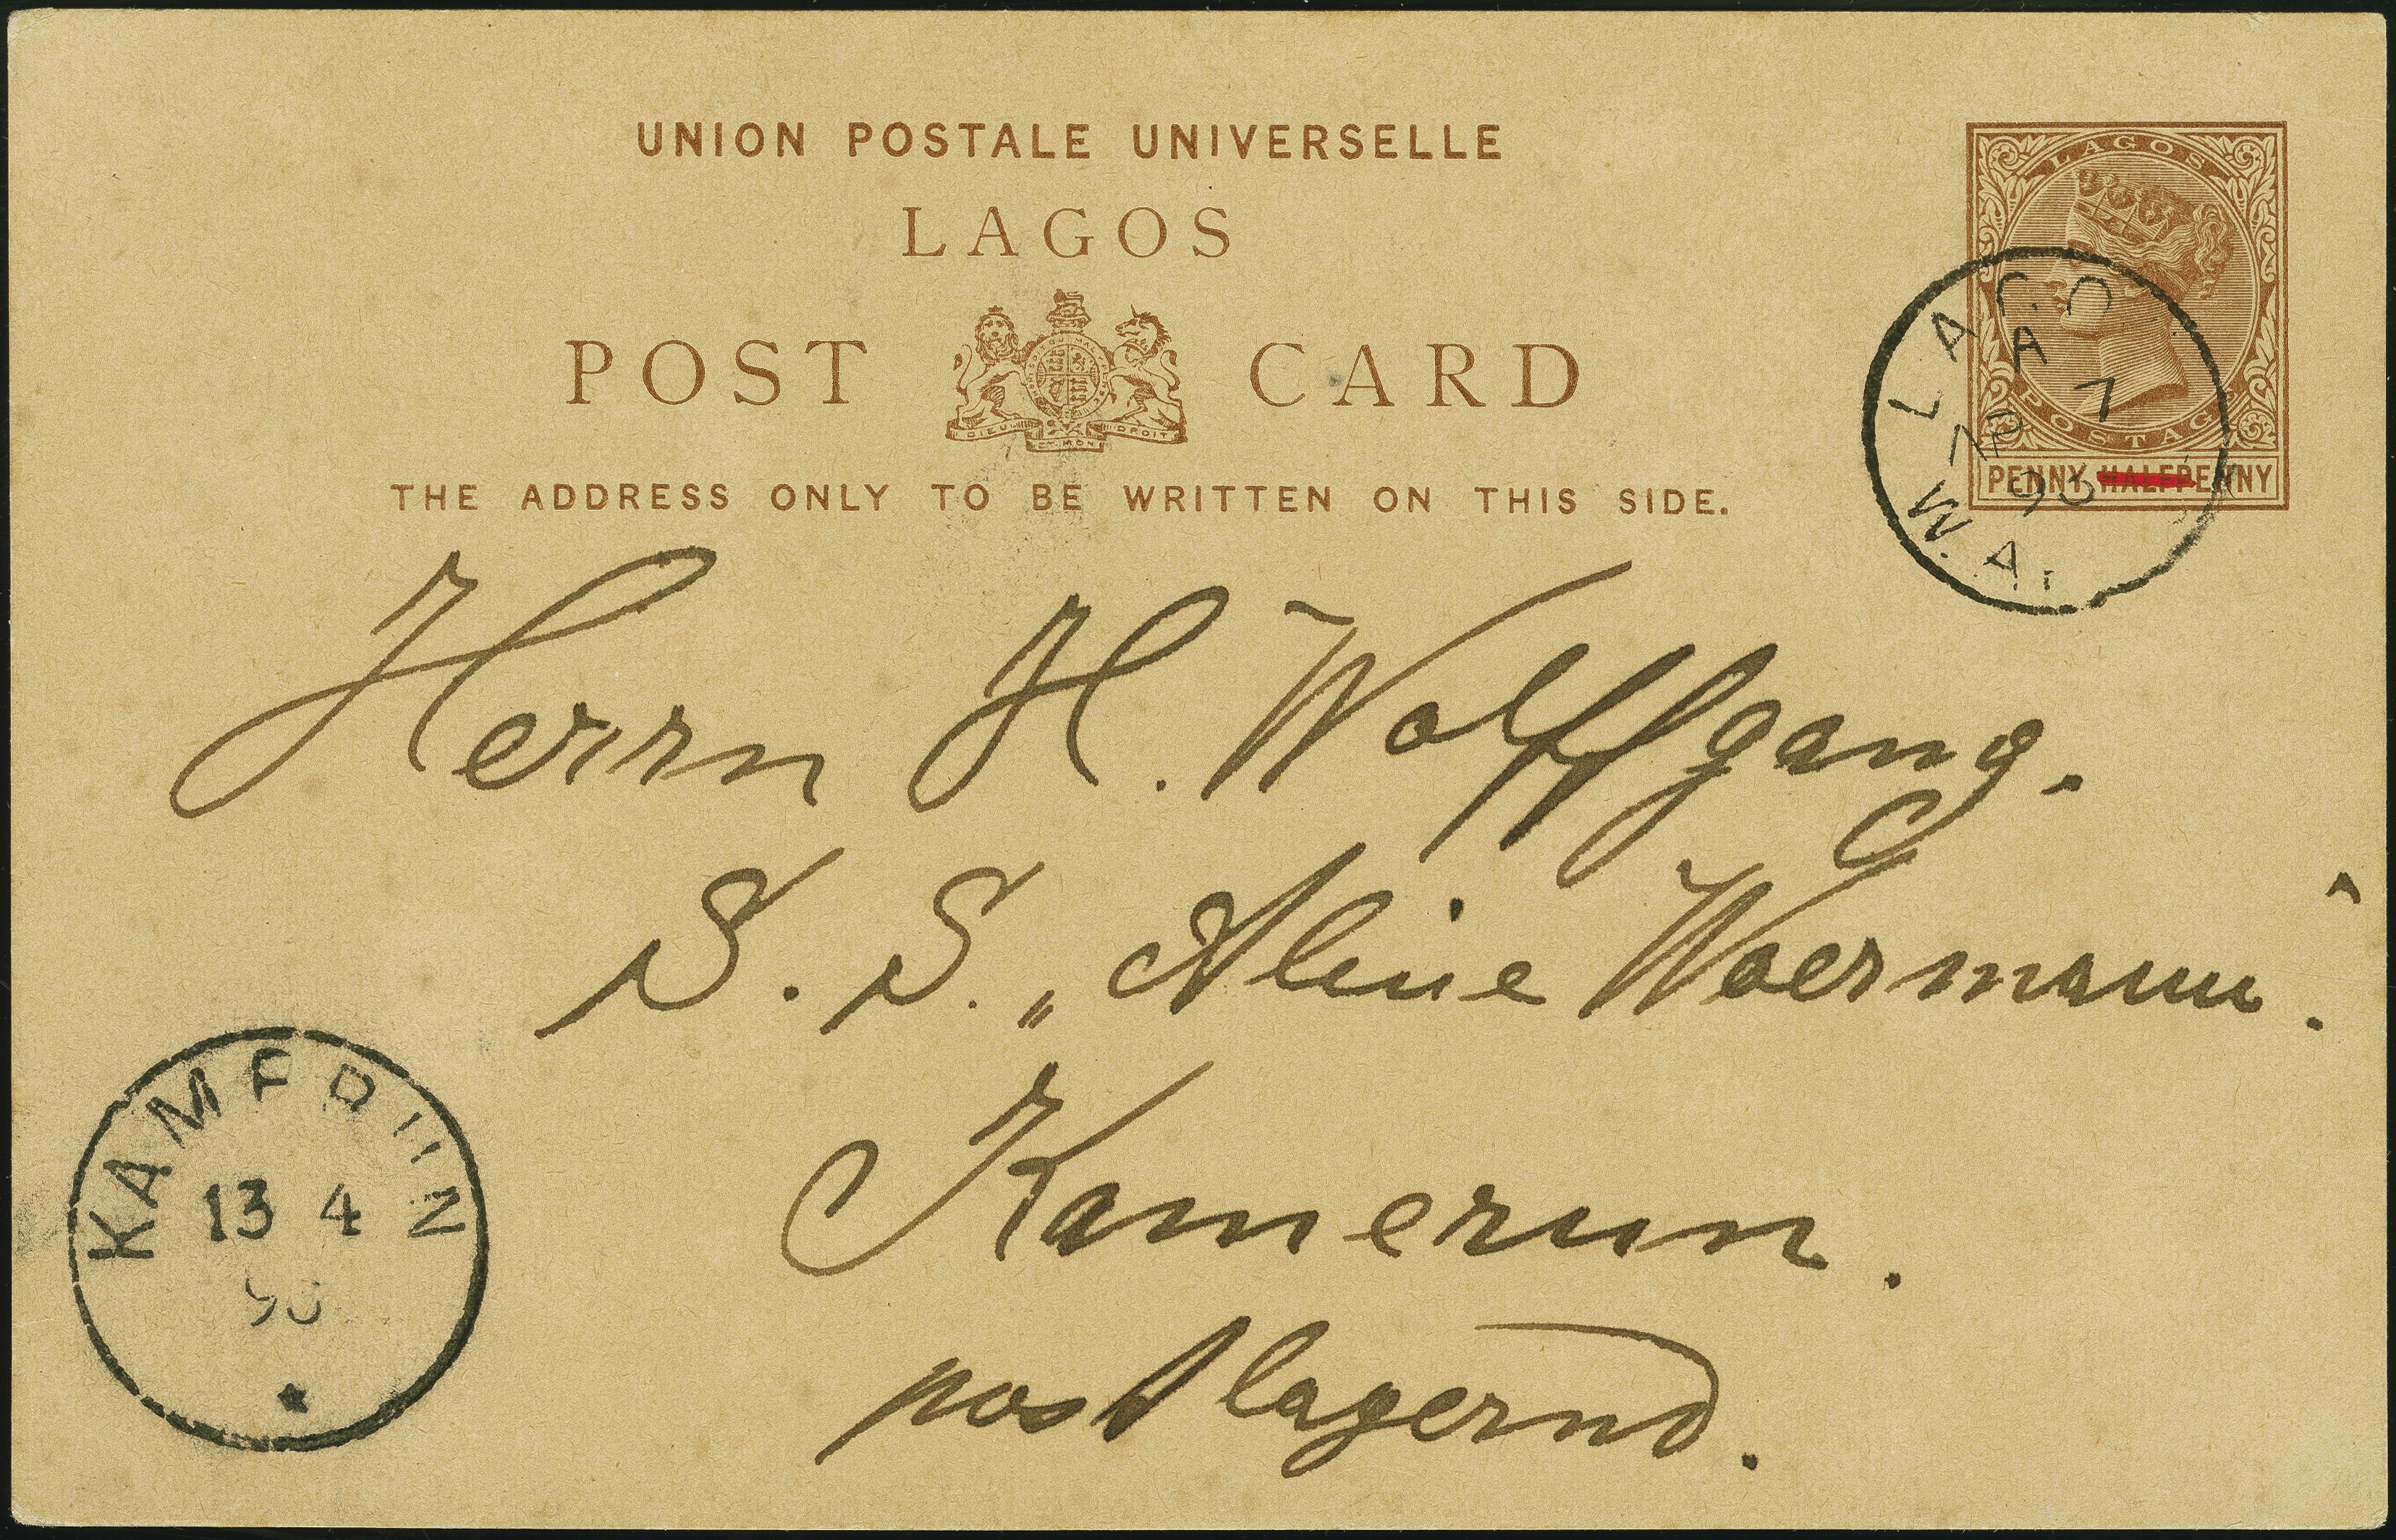 UNION POSTALE UNIVERSELLE
LAGOS
POST CARD
DIEU ET MON DROIT
THE ADDRESS ONLY TO BE WRITTEN ON THIS SIDE.
LAGOS
POSTAGE
PENNY HALFPENNY
LAGO
A
7
93
W. A
Herrn H. Wolffgang.
S. S. „Aline Woermann“.
Kamerun.
postlagernd.
KAMERUN
13 4